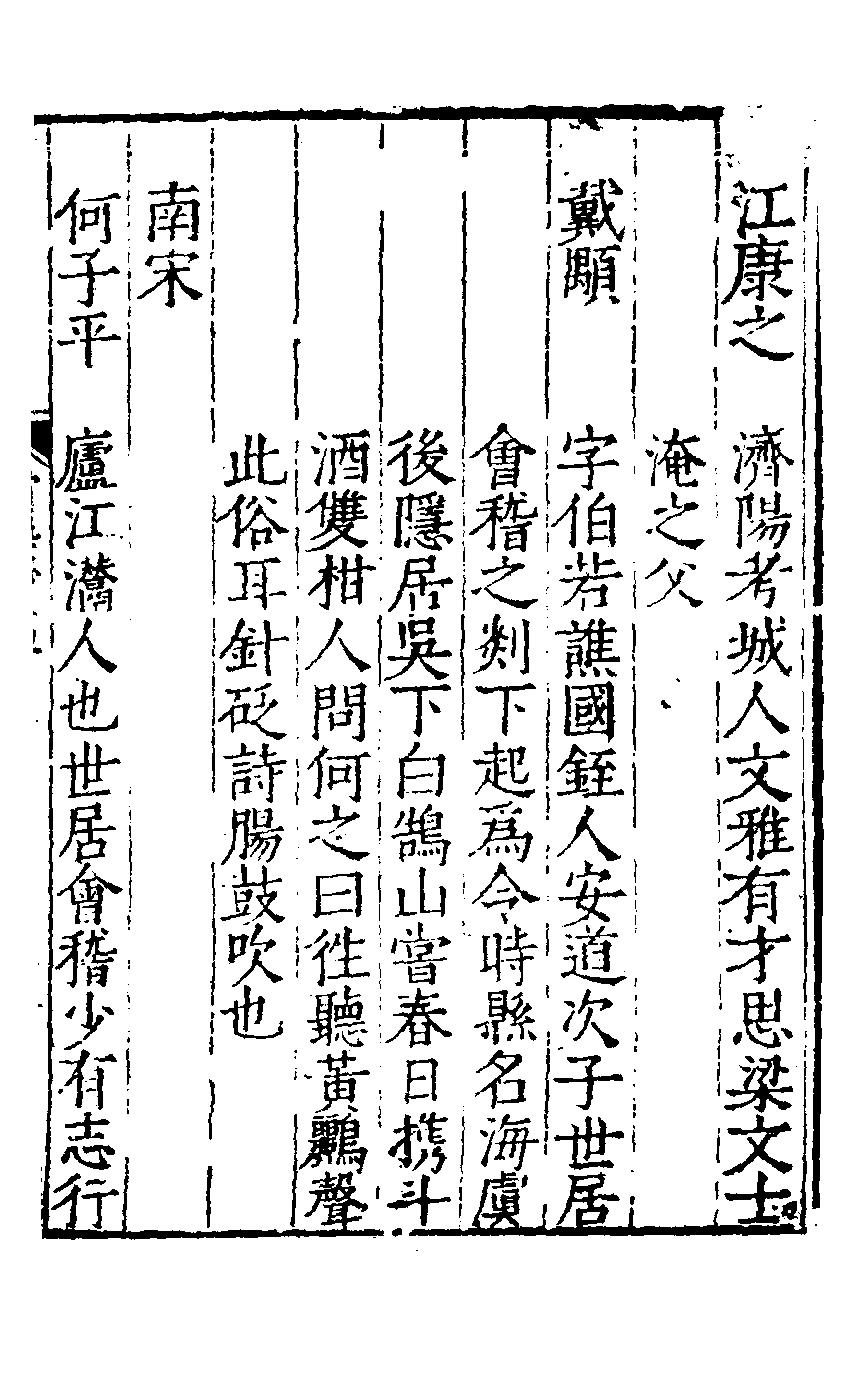 江康之　濟陽考城人文雅有才思梁文士
淹之父
戴顒　字伯若譙國銍人安道次子世居
會稽之剡下起爲令時縣名海虞
後隱居吳下白鵠山嘗春日携斗
酒雙柑人問何之曰徃聽黃鸝聲
此俗耳針砭詩腸鼓吹也
南宋
何子平　廬江灊人也世居會稽少有志行